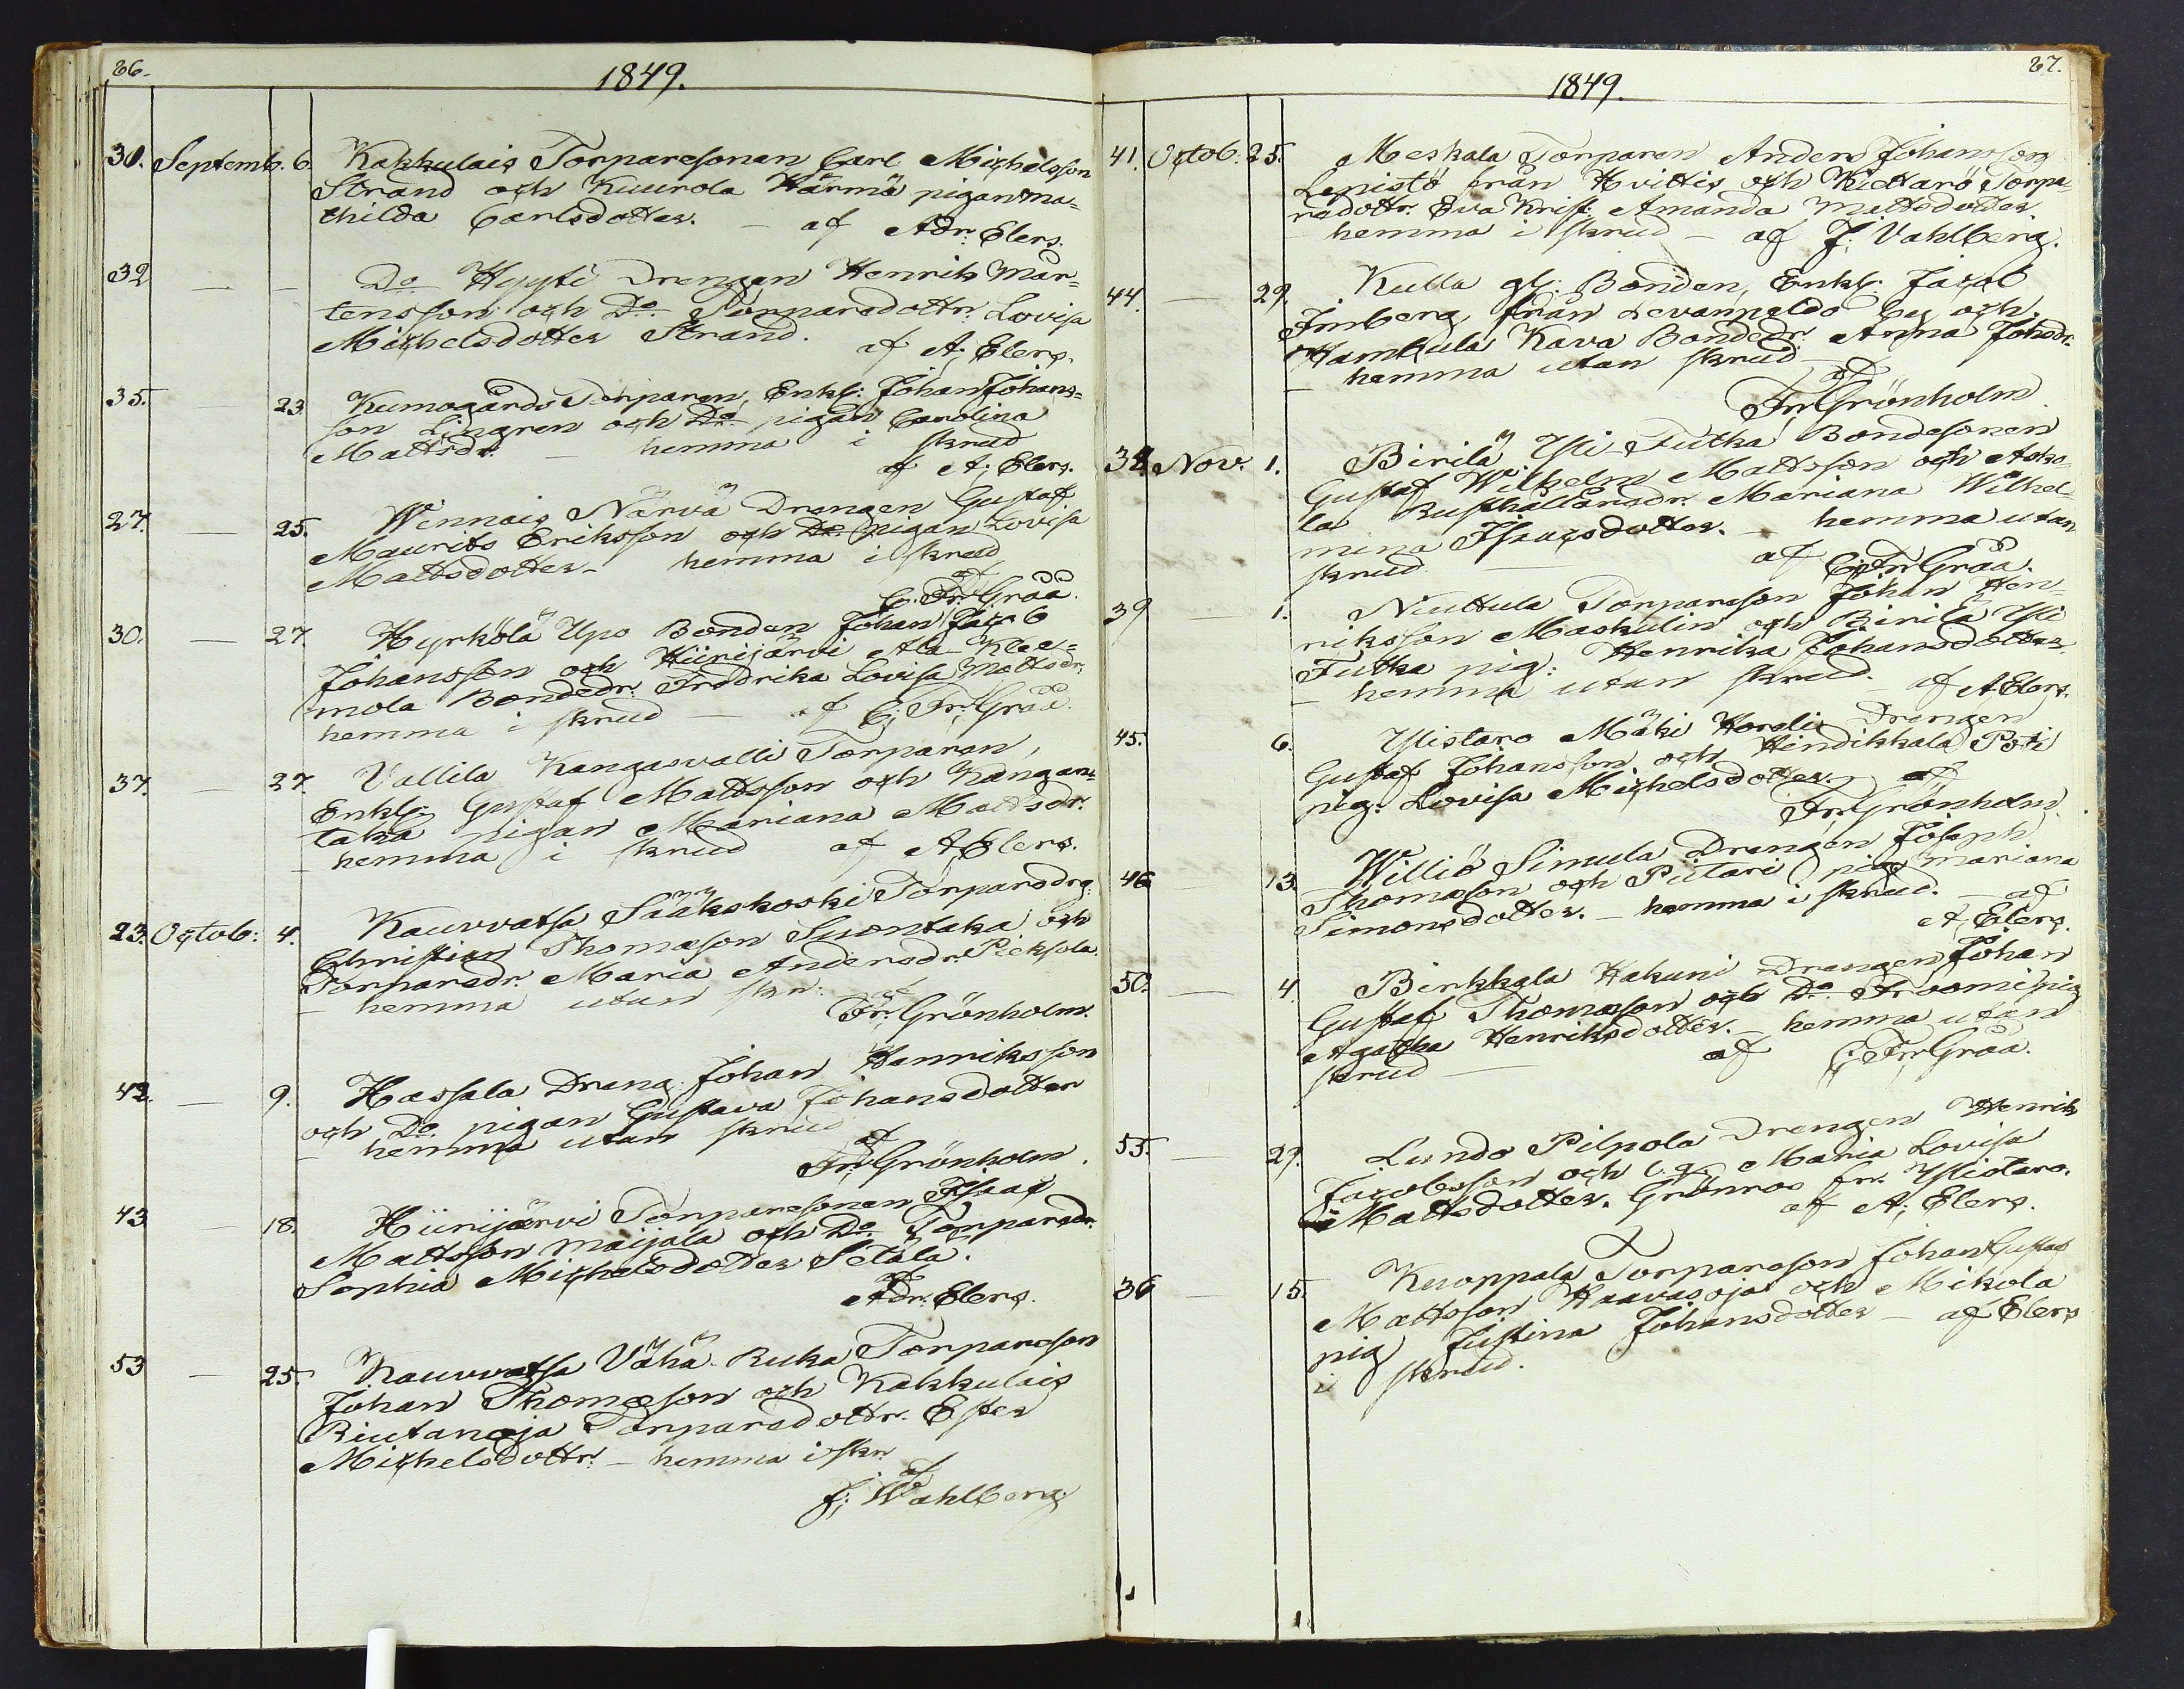 26.
1849.
30. Septemb. 6. Kakkulais Torparesonen Carl Michelsson
Strand och Kuurola Härmä pigan Ma=
thilda Carlsdotter. – af Adr: Elers.
32 – – Do Hyyti Drengen Henrik Mår=
tensson och Do. Torparedottr. Lovisa
Michelsdotter Strand. af A; Elers.
35. – 23. Kumogårds Torparen, Enkl: Johan Johans=
son Lingren och Do pigan Carolina
Mattsdr. – hemma i skrud
af A; Elers.
27. – 25. Wennais Närvä Drengen Gustaf
Maurits Eriksson och Do. pigan Lovisa
Mattsdotter – hemma i skrud
af
C: Fr: Gråå.
30. – 27. Hyrkölä Upo Bonden Johan Jacob
Johansson och Hiirijärvi Ala-Klee=
mola Bondedr. Fredrika Lovisa Mattsdr:
hemma i skrud – af C; Fr; Gråå.
37. – 27. Vallila Kangasvalli Torparen,
Enkl; Gustaf Mattsson och Kangan=
taka pigan Mariana Mattsdr.
– hemma i skrud af A; Elers.
23. Octob: 4. Kauvatsa Sääkskoski Torparedrg:
Christian Thomasson Suontaka och
Torparedr. Maria Andersdr. Pieksola.
– hemma utan skr: af
Fr; Grönholm.
42. – 9. Hassala Dreng. Johan Henriksson
och Do. pigan Gustava Johansdotter
– hemma utan skrud
af
Fr; Grönholm.
43 – 18. Hiirijärvi Torparesonen Isaac
Mattsson Maijala och Do. Torparedr.
Sophia Michelsdotter Setälä.
af
Adr: Elers.
53 – 25. Kauvatsa Vähä-Ruka Torpareson
Johan Thomasson och Kakkulais
Riutanoja Torparedottr. Ester
Michelsdottr: – hemma i skr.
af
J; Wahlberg
27.
1849.
41. Octob: 25. Meskala Torparen Anders Johansson
Lepistö från Hvittis och Kiettarö Torpa=
redottr. Eva Krist: Amanda Mattsdotter
– hemma i skrud – af J; Vahlberg.
44. – 29. Kulla gl: Bonden, Enkl: Jacob
Imberg från Levanpeldo by och
Hambula Kava Bondedr. Anna Johsdr.
– hemma utan skrud –
af
Fr; Grönholm.
38. Nov. 1. Birilä Yli-Futka Bondesonen
Gustaf Wilhelm Mattsson och Asko=
la Rusthållaredr. Mariana Wilhel=
mina Isaacsdotter. – hemma utan
skrud – af C; Fr; Gråå.
39 – 1. Niuttula Torpareson Johan Hen=
riksson Maskulin och Birilä Yli
Futka pig: Henrika Johansdotter.
– hemma utan skrud. – af A Elers.
45. 6. Ylistaro Mäki Horelis Drengen
Gustaf Johansson och Hindikkala Poti
pig. Lovisa Michelsdotter – af
Fr; Grönholm.
46 13. Williö Simula Drengen Joseph
Thomasson och Piitari pig. Mariana
Simonsdotter. – hemma i skrud. – af
A; Elers.
50. – 4. Birkkala Hakuni Drengen Johan
Gustaf Thomasson och Do. Froomi pig
Agatha Henriksdotter. – hemma utan
skrud – af C; Fr; Gråå.
55. – 29. Lundo Pilpola Drengen Henrik
Jacobsson och Maria Lovisa
Mattsdotter. Grönroos fr. Ylistaro.
af A; Elers.
36 – 15. Kuoppala Torpareson Johan Gustaf
Mattsson Haavisoja och Mikola
pig Justina Johansdotter – af Elers
i skrud.